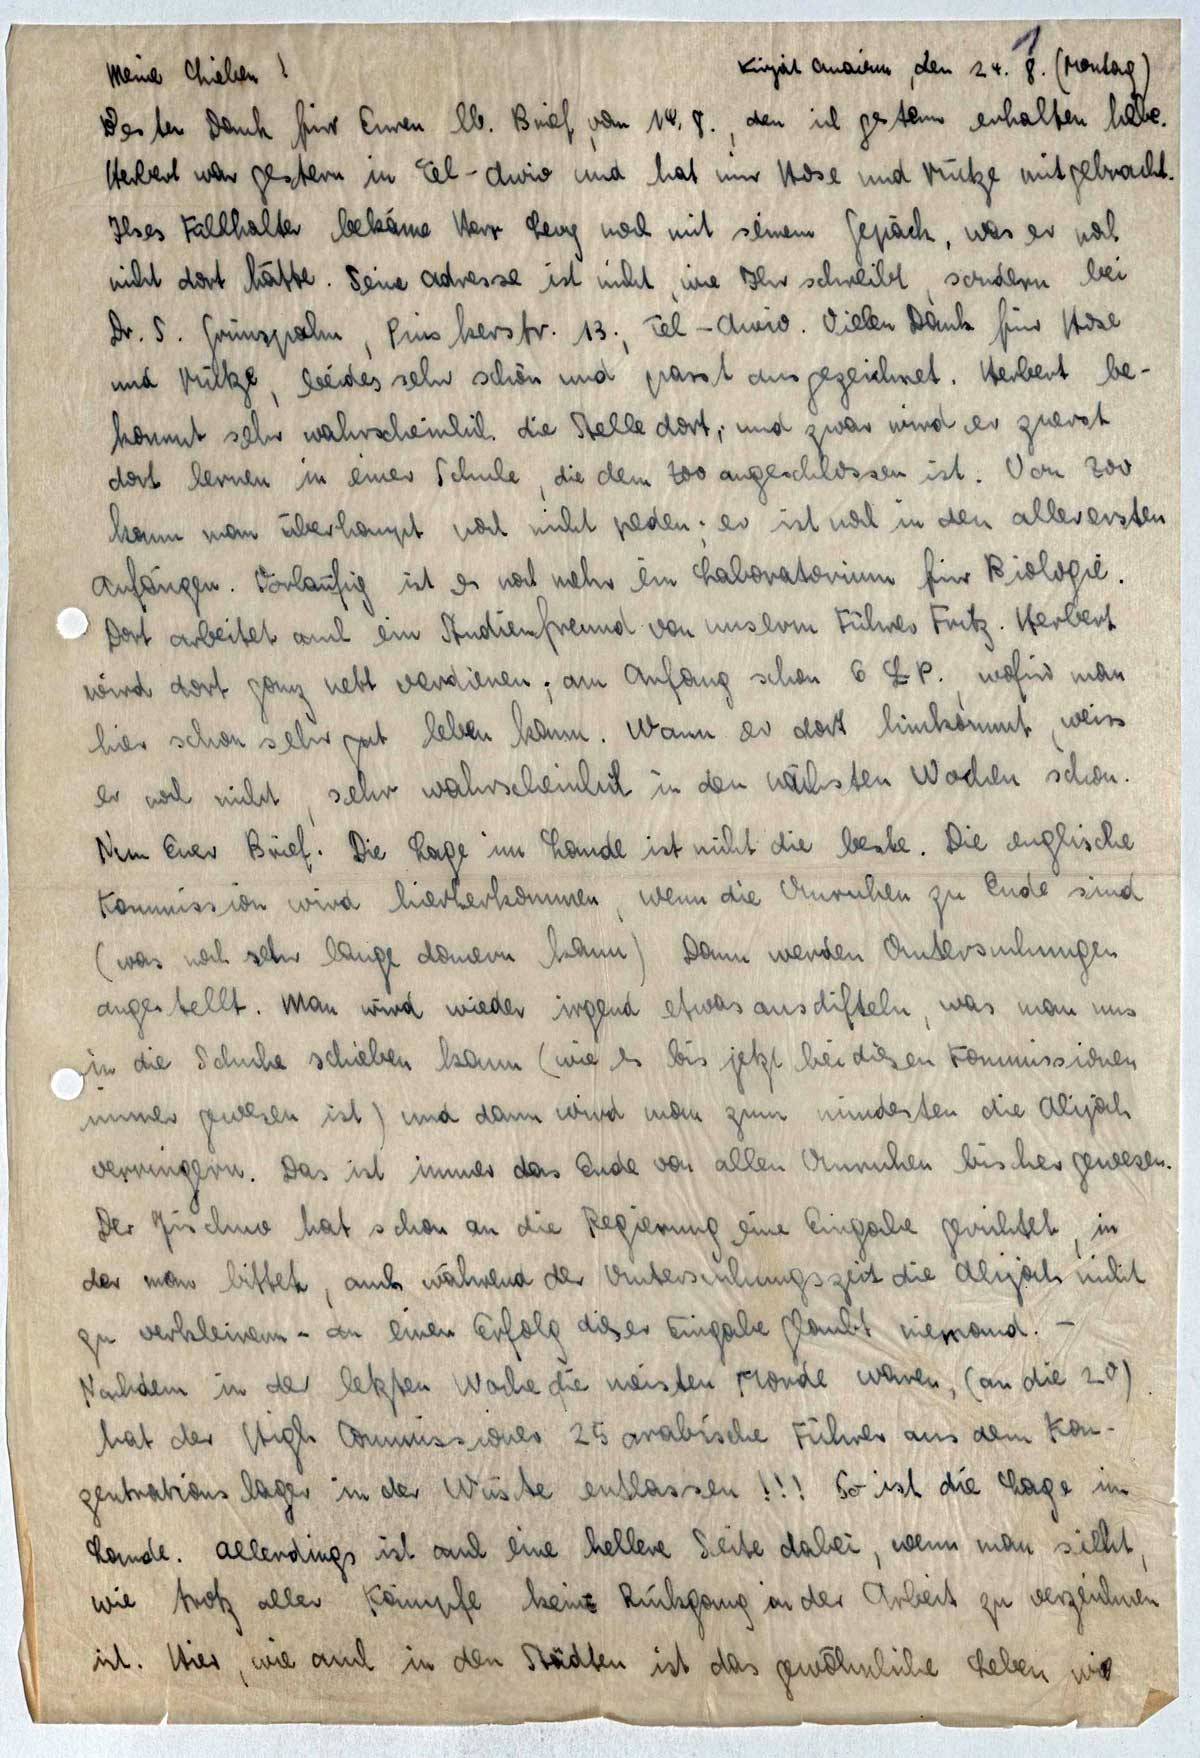 1
Meine Lieben! Kirjat Anavim, den 24. 8. (Montag)
Besten Dank für Euren lb. Brief vom 14. 8., den ich gestern erhalten habe.
Herbert war gestern in Tel-Awiw und hat mir Hose und Mütze mitgebracht.
Ilses Füllhalter bekäme Herr Levy noch mit seinem Gepäck, was er noch
nicht dort hätte. Seine Adresse ist nicht, wie Ihr schreibt, sondern bei
Dr. S. Grünspahn, Pinskerstr. 13., Tel-Awiw. Vielen Dank für Hose
und Mütze, beides sehr schön und passt ausgezeichnet. Herbert be-
kommt sehr wahrscheinlich die Stelle dort, und zwar wird er zuerst
dort lernen in einer Schule, die dem Zoo angeschlossen ist. Vom Zoo
kann man überhaupt noch nicht reden; er ist noch in den allerersten
Anfängen. Vorläufig ist es noch mehr ein Laboratorium für Biologie.
Dort arbeitet auch ein Studienfreund von unserm Führer Fritz. Herbert
wird dort ganz nett verdienen; am Anfang schon 6 £P., wofür man
hier schon sehr gut leben kann. Wann er dort hinkommt, weiss
er noch nicht, sehr wahrscheinlich in den nächsten Wochen schon.
Nun Euer Brief. Die Lage im Lande ist nicht die beste. Die englische
Kommission wird hierherkommen, wenn die Unruhen zu Ende sind
(was noch sehr lange dauern kann) Dann werden Untersuchungen
angestellt. Man wird wieder irgend etwas ausdifteln, was man uns
in die Schuhe schieben kann (wie es bis jetzt bei diesen Kommissionen
immer gewesen ist) und dann wird man zum mindesten die Alijah
verringern. Das ist immer das Ende von allen Unruhen bisher gewesen.
Der Jischuw hat schon an die Regierung eine Eingabe gerichtet, in
der man bittet, auch während der Untersuchungszeit die Alijah nicht
zu verkleinern - an einen Erfolg dieser Eingabe glaubt niemand. -
Nachdem in der letzten Woche die meisten Morde waren, (an die 20)
hat der High Commissioner 25 arabische Führer aus dem Kon-
zentrationslager in der Wüste entlassen!!! So ist die Lage im
Lande. Allerdings ist auch eine hellere Seite dabei, wenn man sieht,
wie trotz aller Kämpfe kein Rückgang in der Arbeit zu verzeichnen
ist. Hier, wie auch in den Städten ist das gewöhnliche Leben wie